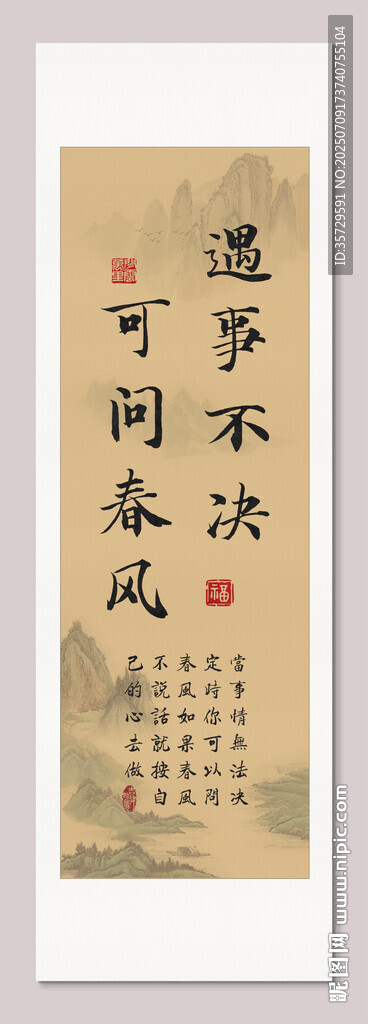 遇事不决
可问春风
福
當事情無法决
定時你可以問
春風如果春風
不說話就按自
己的心去做
ID:35729591 NO:20250709173740755104
昵图网 www.nipic.com